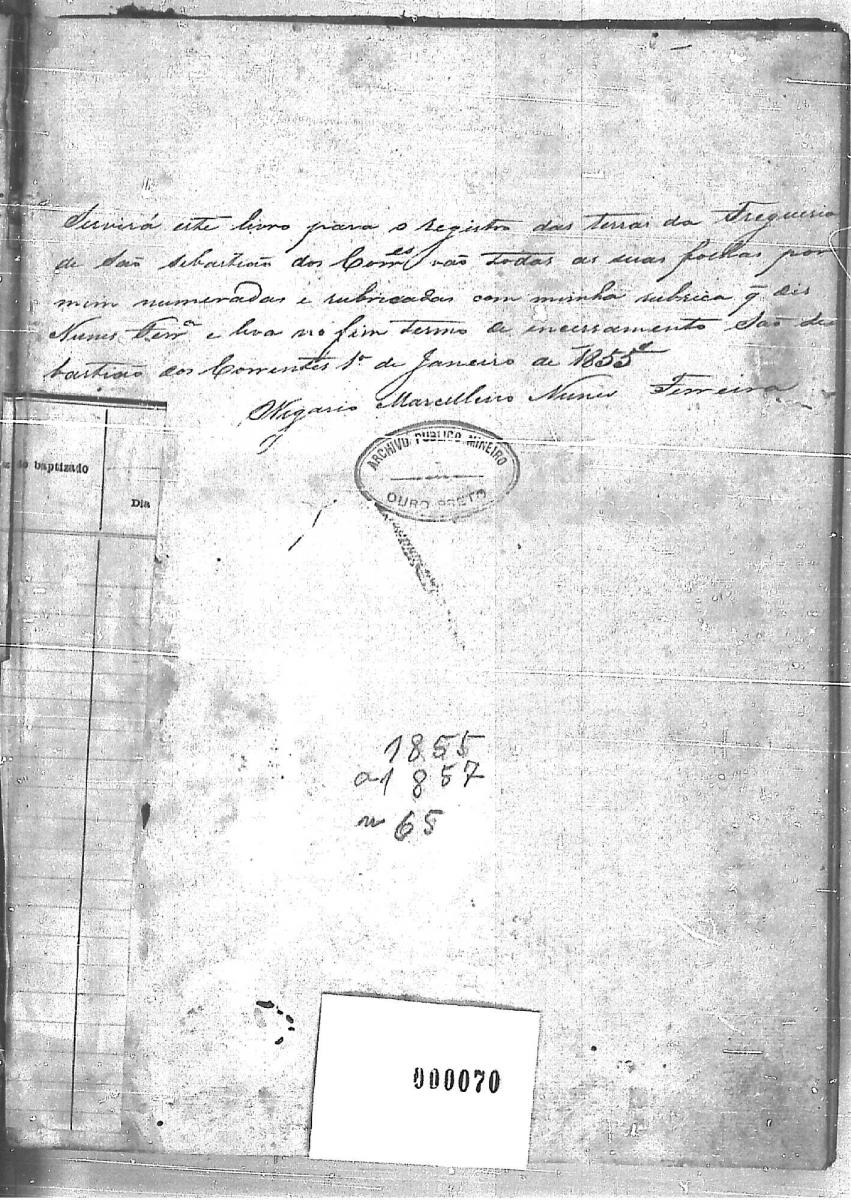 Servirá este livro para o registro das terras da Freguesia
de São Sebastião dos Corres vão todas as suas folhas por
mim numeradas e rubricadas com minha rubrica q̃ dis
Nunes Ferrª e leva no fim termo de encerramento São Se
bastião dos Correntes 1º de Janeiro de 1855
O Vigario Marcellino Nunes Ferreira
do baptizado
Dia
ARCHIVO PUBLICO MINEIRO
OURO PRETO
1855
a 1857
n 65
000070